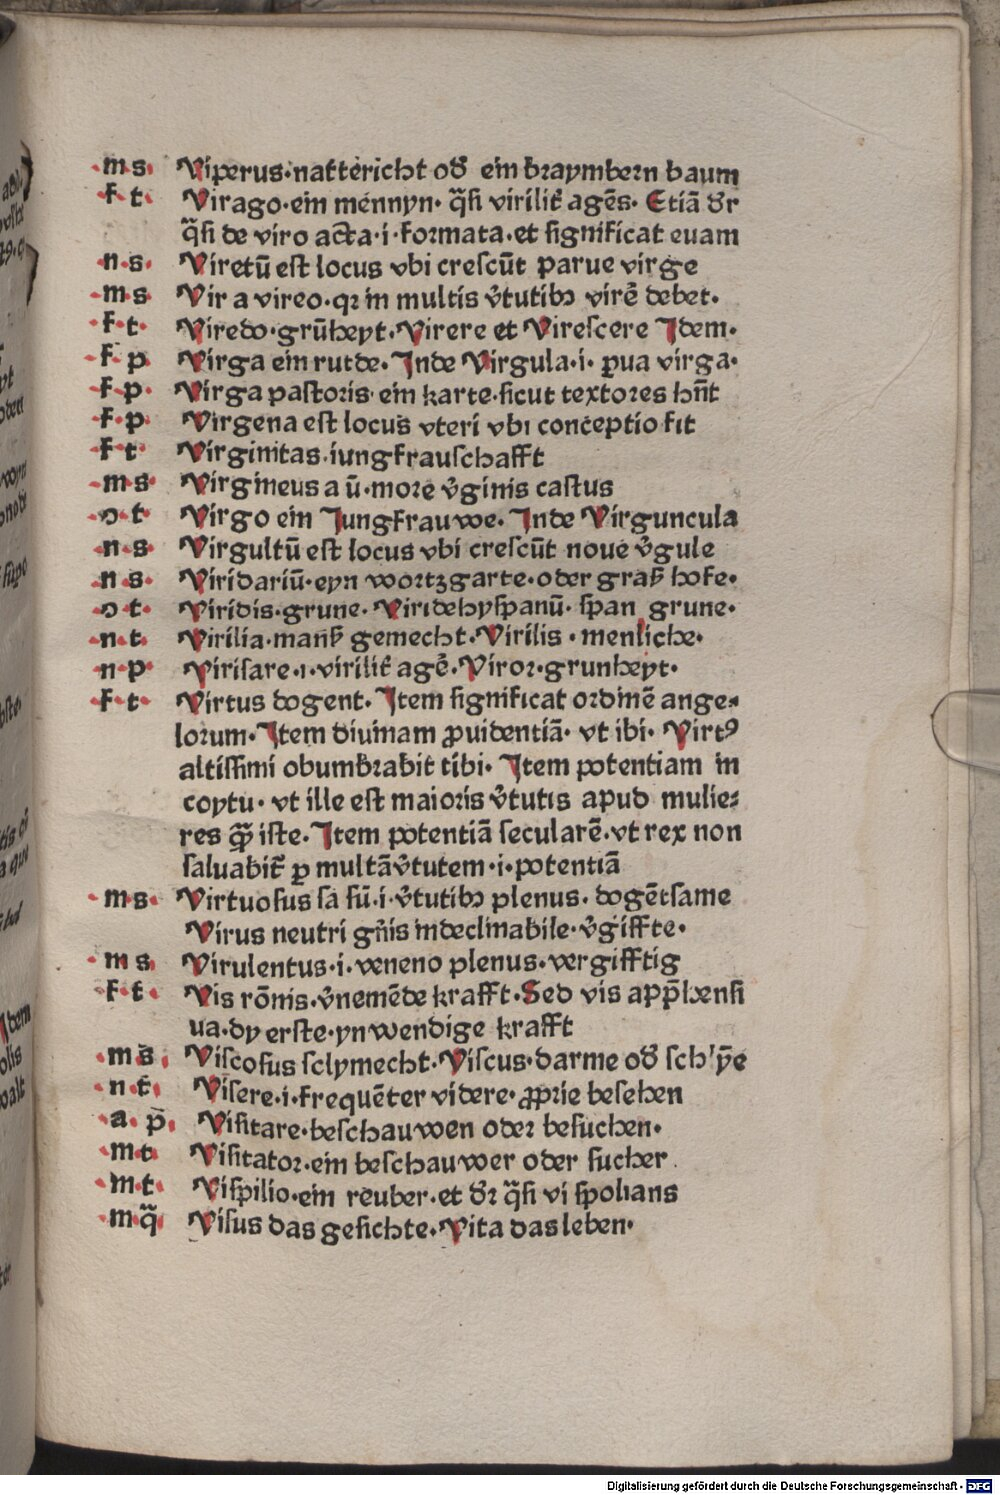 ·m·s· Viperus·nattericht od̕ ein braymbern baum
·f·t· Virago·ein mennyn· q̄si virilit̕ agēs· Etiā d̕r
q̄si de viro acta·i·formata·et significat euam
·n·s· Viretū est locus vbi crescūt parue virge
·m·s· Vir a vireo·qꝛ in multis v̕tutibꝫ virē debet·
·f·t· Viredo·grūheyt·Virere et Virescere Idem·
·f·p· Virga ein rutde·Inde Virgula·i·ꝑua virga·
·f·p· Virga pastoris·ein karte·sicut textores hn̄t
·f·p· Virgena est locus vteri vbi conceptio fit
·f·t· Virginitas·iungfrauschafft
·m·s· Virgineus a ū·more v̕ginis castus
·ↄ·t· Virgo ein Jungfrauwe·Inde Virguncula
·n·s· Virgultū est locus vbi crescūt noue v̕gule
·n·s· Viridariū·eyn wortzgarte·oder graß hofe·
·ↄ·t· Viridis·grune·Viridehyspanū·span grune·
·n·t· Virilia·manß gemecht·Virilis·menliche·
·n·p· Virisare·i·virilit̕ agē·Viror·grunheyt·
·f·t· Virtus dogent·Item significat ordinē ange⸗
lorum·Item diuinam ꝓuidentiā·vt ibi·Virtꝰ
altissimi obumbrabit tibi·Item potentiam in
coytu·vt ille est maioris v̕tutis apud mulie⸗
res q̄ꝫ iste·Item potentiā secularē·vt rex non
saluabit̕ ꝑ multā v̕tutem·i·potentiā
·m·s· Virtuosus sa sū·i·v̕tutibꝫ plenus·dogētsame
Virus neutri gn̄is indeclinabile·v̕giffte·
·m·s· Virulentus·i·veneno plenus·vergifftig
·f·t· Vis rōnis·v̕nemēde krafft·Sed vis app̄hensi
ua·dy erste·ynwendige krafft
·m·s· Viscosus sclymecht·Viscus·darme od̕
·n·t· Visere·i·frequēter videre·ꝓprie besehen
·a·p· Visitare·beschauwen oder besuchen·
·m·t· Visitator·ein beschauwer oder sucher
·m·t· Vispilio·ein reuber·et d̕r q̄si vi spolians
·m·q̄· Visus das gesichte·Vita das leben·
Digitalisierung gefördert durch die Deutsche Forschungsgemeinschaft · DFG